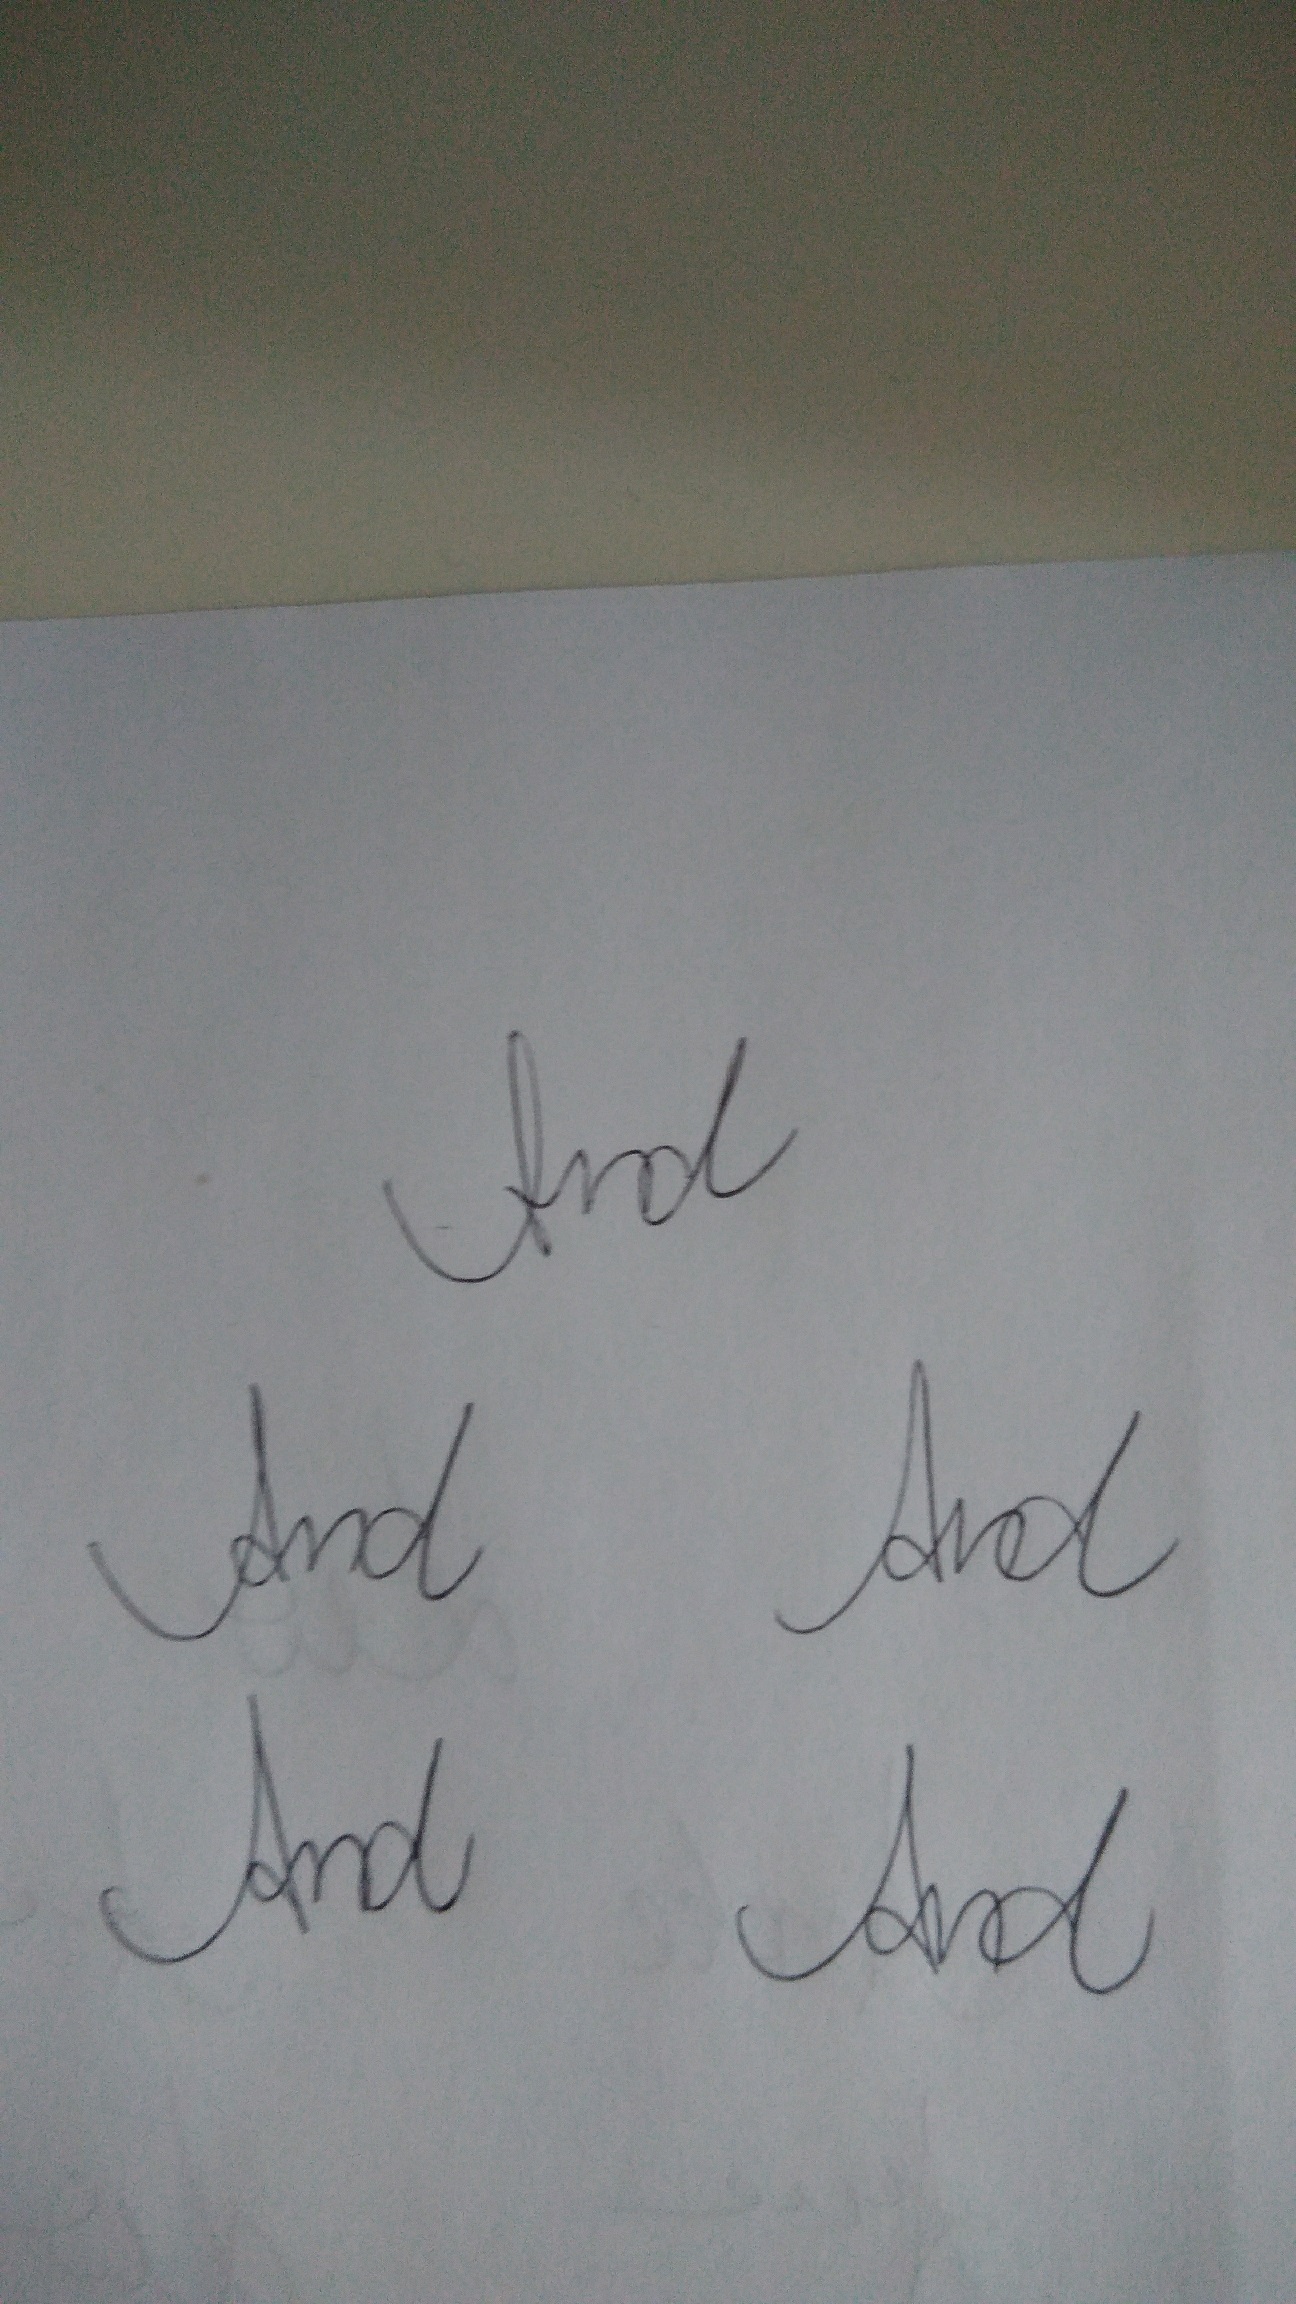 And
And And
And And